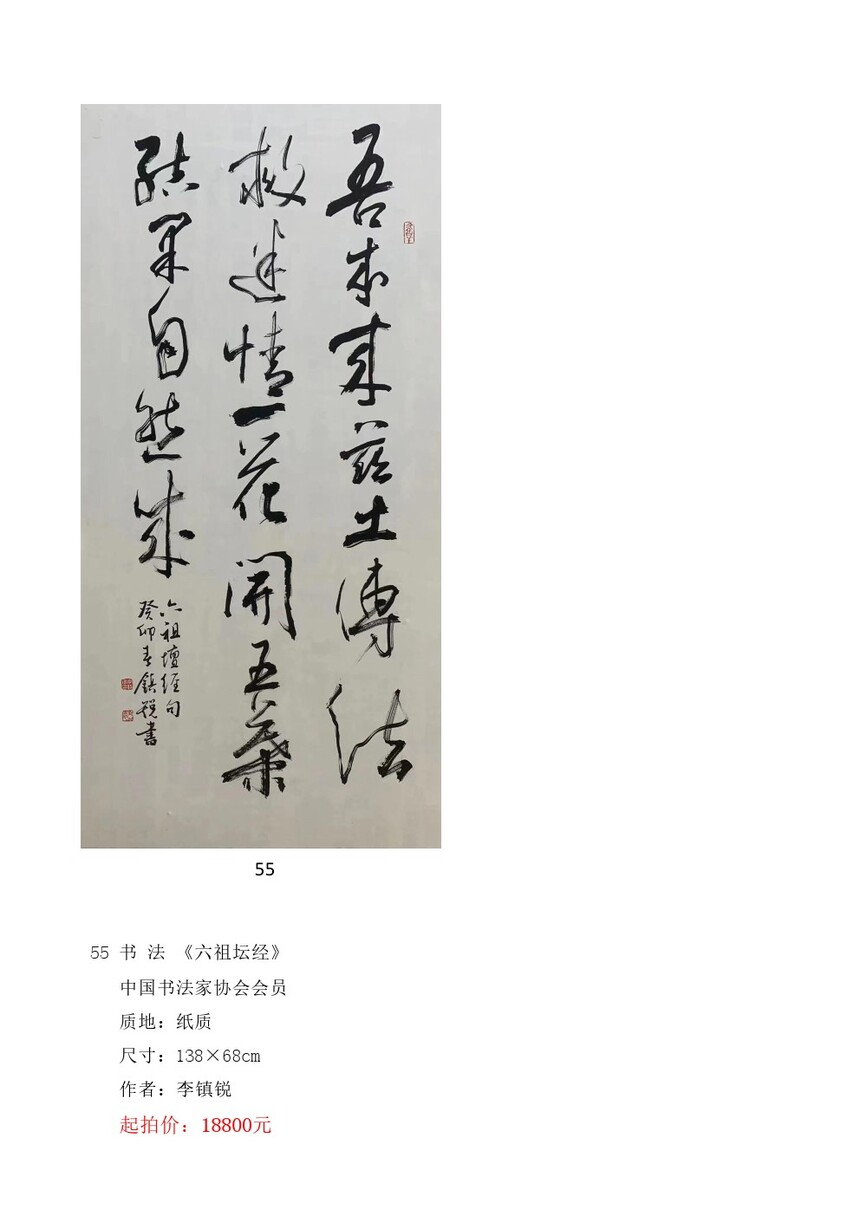 吾本来兹土傳法
救迷情一花開五葉
結果自然成
六祖壇经句
癸卯春鎮銳書
55
55 书 法 《六祖坛经》
中国书法家协会会员
质地：纸质
尺寸：138×68cm
作者：李镇锐
起拍价：18800元